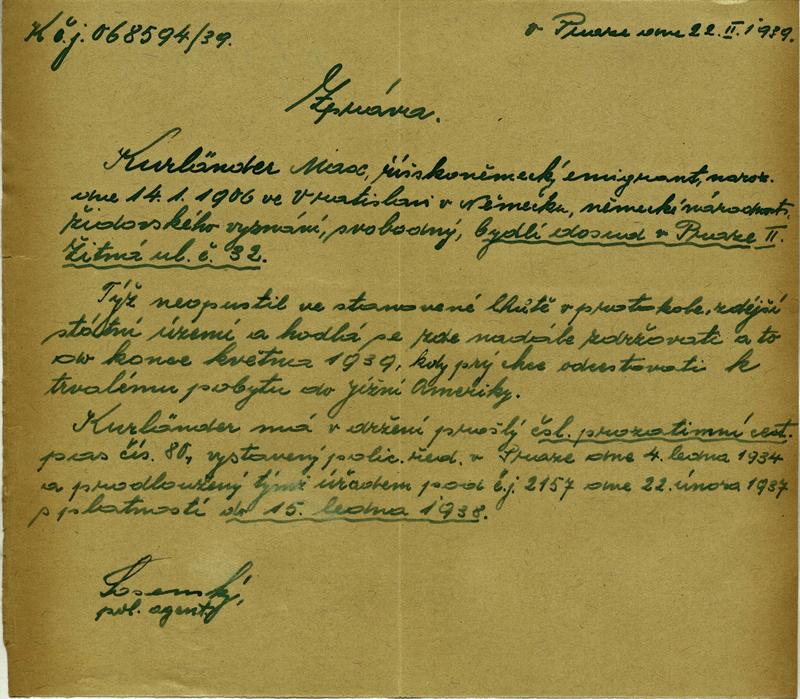 K č.j. 068594/39.
v Praze dne 22.II.1939.
Zpráva.
Kurländer Max, říšskoněmecký emigrant, naroz.
dne 14.1.1906 ve Vratislavi v Německu, německé národnosti,
židovského vyznání, svobodný, bydlí dosud v Praze II.
Žitná ul. č. 32.
Týž neopustil ve stanovené lhůtě v protokole, zdější
státní území a hodlá se zde nadále zdržovati a to
do konce května 1939, kdy prý chce odcestovati k
trvalému pobytu do Jižní Ameriky.
Kurländer má v držení prošlý čsl. prozatimní cest.
pas čís. 80, vystavený polic. řed. v Praze dne 4. ledna 1934
a prodloužený týmž úřadem pod č.j. 2157 dne 22. února 1937
s platností do 15. ledna 1938.
pol. agent